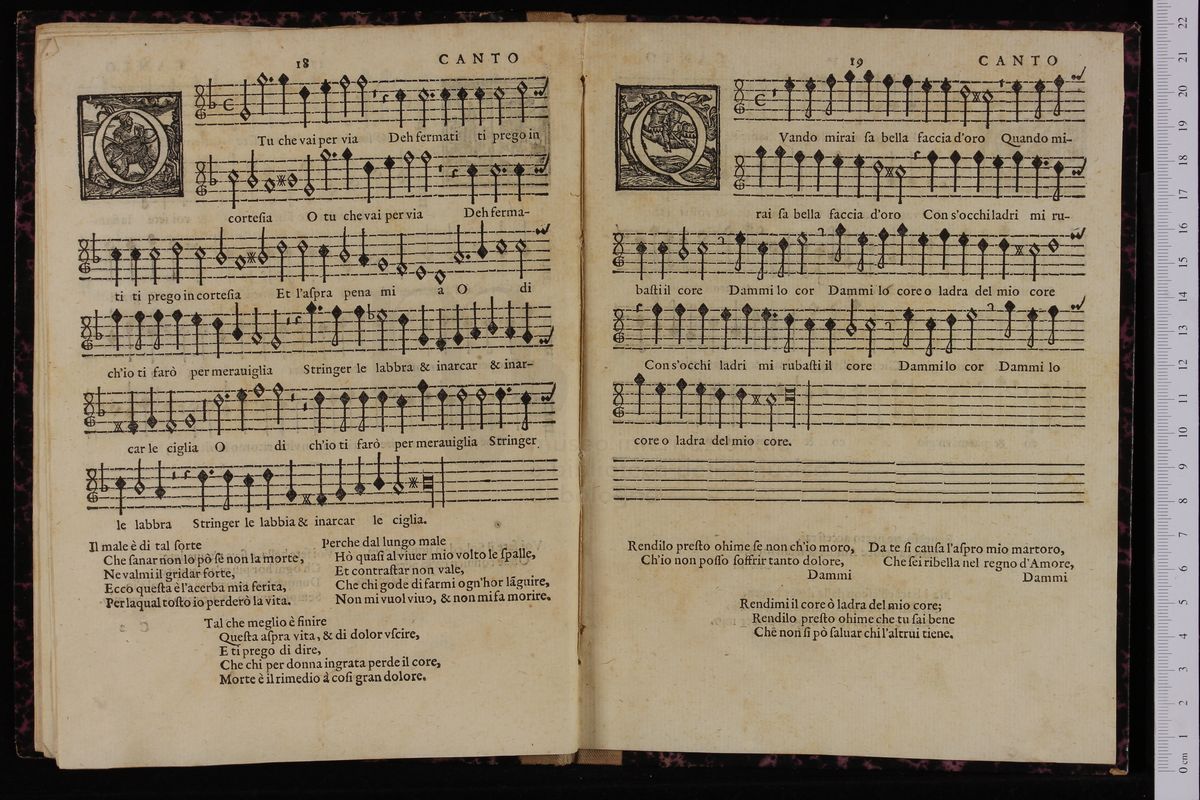 18
CANTO
O
Tu che vai per via Deh fermati ti prego in
cortesia O tu che vai per via Deh ferma-
ti ti prego in cortesia Et l'aſpra pena mi a O di
ch'io ti farò per merauiglia Stringer le labbra & inarcar & inar-
car le ciglia O di ch'io ti farò per merauiglia Stringer
le labbra Stringer le labbia & inarcar le ciglia.
Il male è di tal ſorte
Che ſanar non lo pò ſe non la morte,
Ne valmi il gridar forte,
Ecco queſta è l'acerba mia ferita,
Per laqual toſto io perderò la vita.
Perche dal lungo male
Hò quaſi al viuer mio volto le ſpalle,
Et contraſtar non vale,
Che chi gode di farmi ogn'hor lãguire,
Non mi vuol viuo, & non mi fa morire.
Tal che meglio è finire
Queſta aſpra vita, & di dolor vſcire,
E ti prego di dire,
Che chi per donna ingrata perde il core,
Morte è il rimedio à coſi gran dolore.
19
CANTO
Q
Vando mirai ſa bella faccia d'oro Quando mi-
rai ſa bella faccia d'oro Con s'occhi ladri mi ru-
baſti il core Dammi lo cor Dammi lo core o ladra del mio core
Con s'occhi ladri mi rubaſti il core Dammi lo cor Dammi lo
core o ladra del mio core.
Rendilo preſto ohime ſe non ch'io moro,
Ch'io non poſſo ſoffrir tanto dolore,
Dammi
Da te ſi cauſa l'aſpro mio martoro,
Che ſei ribella nel regno d'Amore,
Dammi
Rendimi il core ò ladra del mio core;
Rendilo preſto ohime che tu ſai bene
Che non ſi pò ſaluar chi l'altrui tiene.
0 cm 1 2 3 4 5 6 7 8 9 10 11 12 13 14 15 16 17 18 19 20 21 22